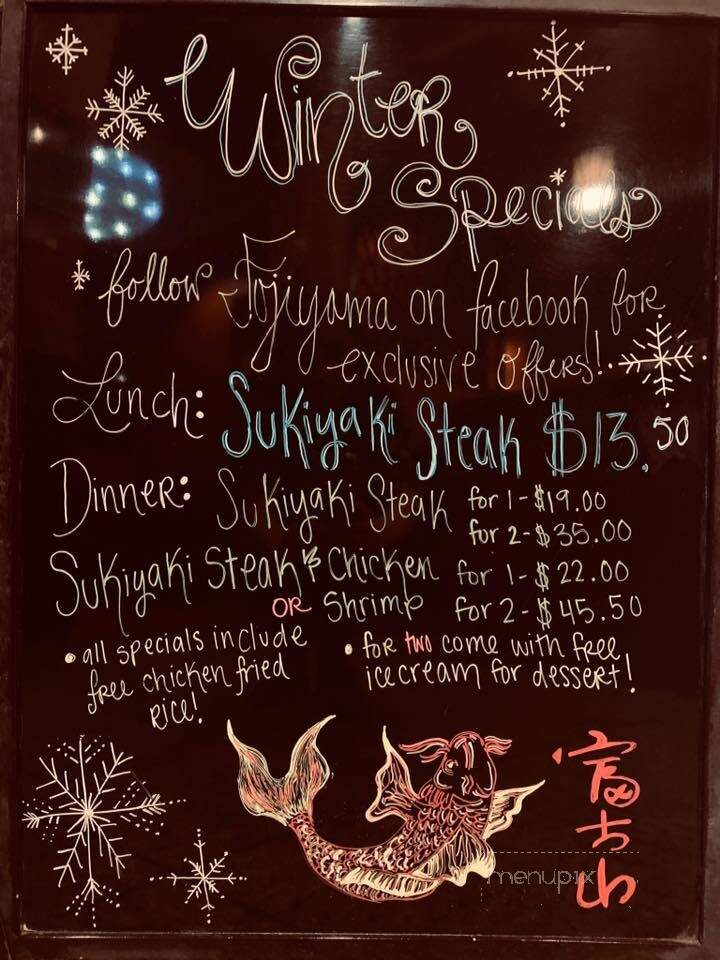 Winter
Specials
follow Fojiyama on facebook for
exclusive offers!
Lunch: Sukiyaki Steak $13.50
Dinner: Sukiyaki Steak for 1 - $19.00
for 2 - $35.00
Sukiyaki Steak & Chicken for 1 - $22.00
OR Shrimp for 2 - $45.50
• all specials include
free chicken fried
rice!
• for two come with free
ice cream for dessert!
富士山
menupix